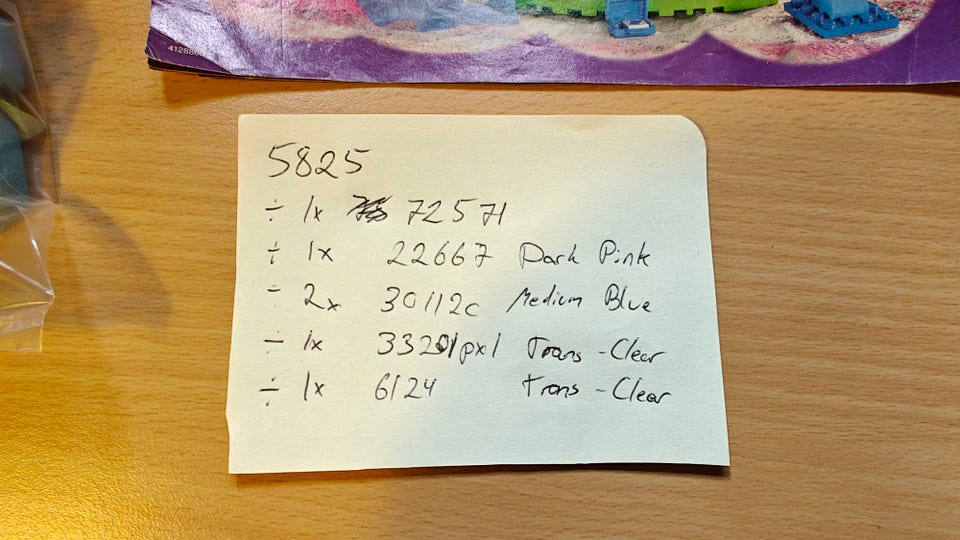 5825
÷ 1x 72571
÷ 1x 22667 Dark Pink
÷ 2x 30112c Medium Blue
÷ 1x 33201px1 Trans-Clear
÷ 1x 6124 Trans-Clear